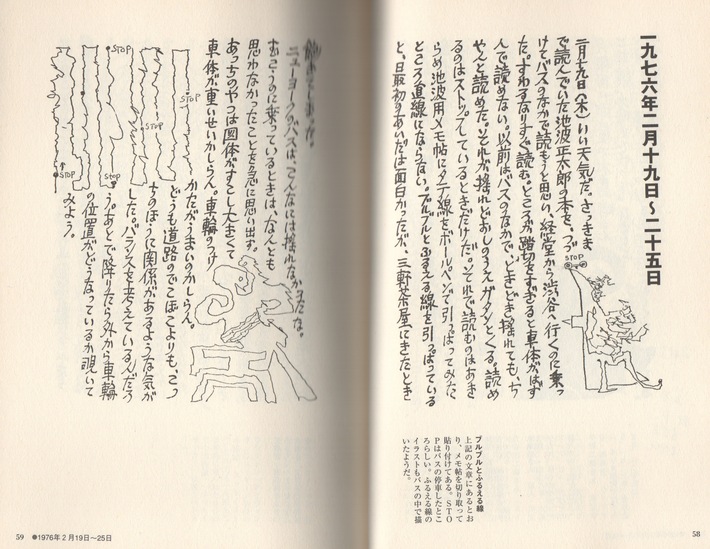 一九七六年二月十九日〜二十五日
二月十九日(木)いい天気だ。さっきま
で読んでいた池波正太郎の本を、つづ
けてバスのなかで読もうと思い、経堂から渋谷へ行くのに乗っ
た。すわるなりすぐ読む。ところが踏切をすぎると車体がはず
んで読めない。以前はバスのなかで、ときどき揺れても、ち
ゃんと読めた。それが揺れどおしのうえガタンとくる。読め
るのはストップしているときだけだ。それで読むのはあき
らめ池波用メモ帖にタテ線をボールペンで引っぱってみた
ところ直線にならない。ブルブルとふるえる線を引っぱっている
と、最初のあいだは面白かったが、三軒茶屋にきたとき
STOP
ブルブルとふるえる線
上記の文章にあるとお
り、メモ帖を切り取って
貼り付けてある。STO
Pはバスの停車したとこ
ろらしい。ふるえる線の
イラストもバスの中で描
いたようだ。
58
飽きてしまった。
ニューヨークのバスは、こんなには揺れなかったな。
むこうのに乗っているときは、なんとも
思わなかったことを急に思い出す。
あっちのやつは図体がすこし大きくて
車体が重いせいかしらん。車輪のつけ
かたがうまいのかしらん。
どうも道路のでこぼこよりも、こっ
ちのほうに関係があるような気が
した。バランスを考えているんだろ
う。あとで降りたら外から車輪
の位置がどうなっているか覗いて
みよう。
STOP
STOP
STOP
STOP
STOP
59 ●1976年2月19日〜25日